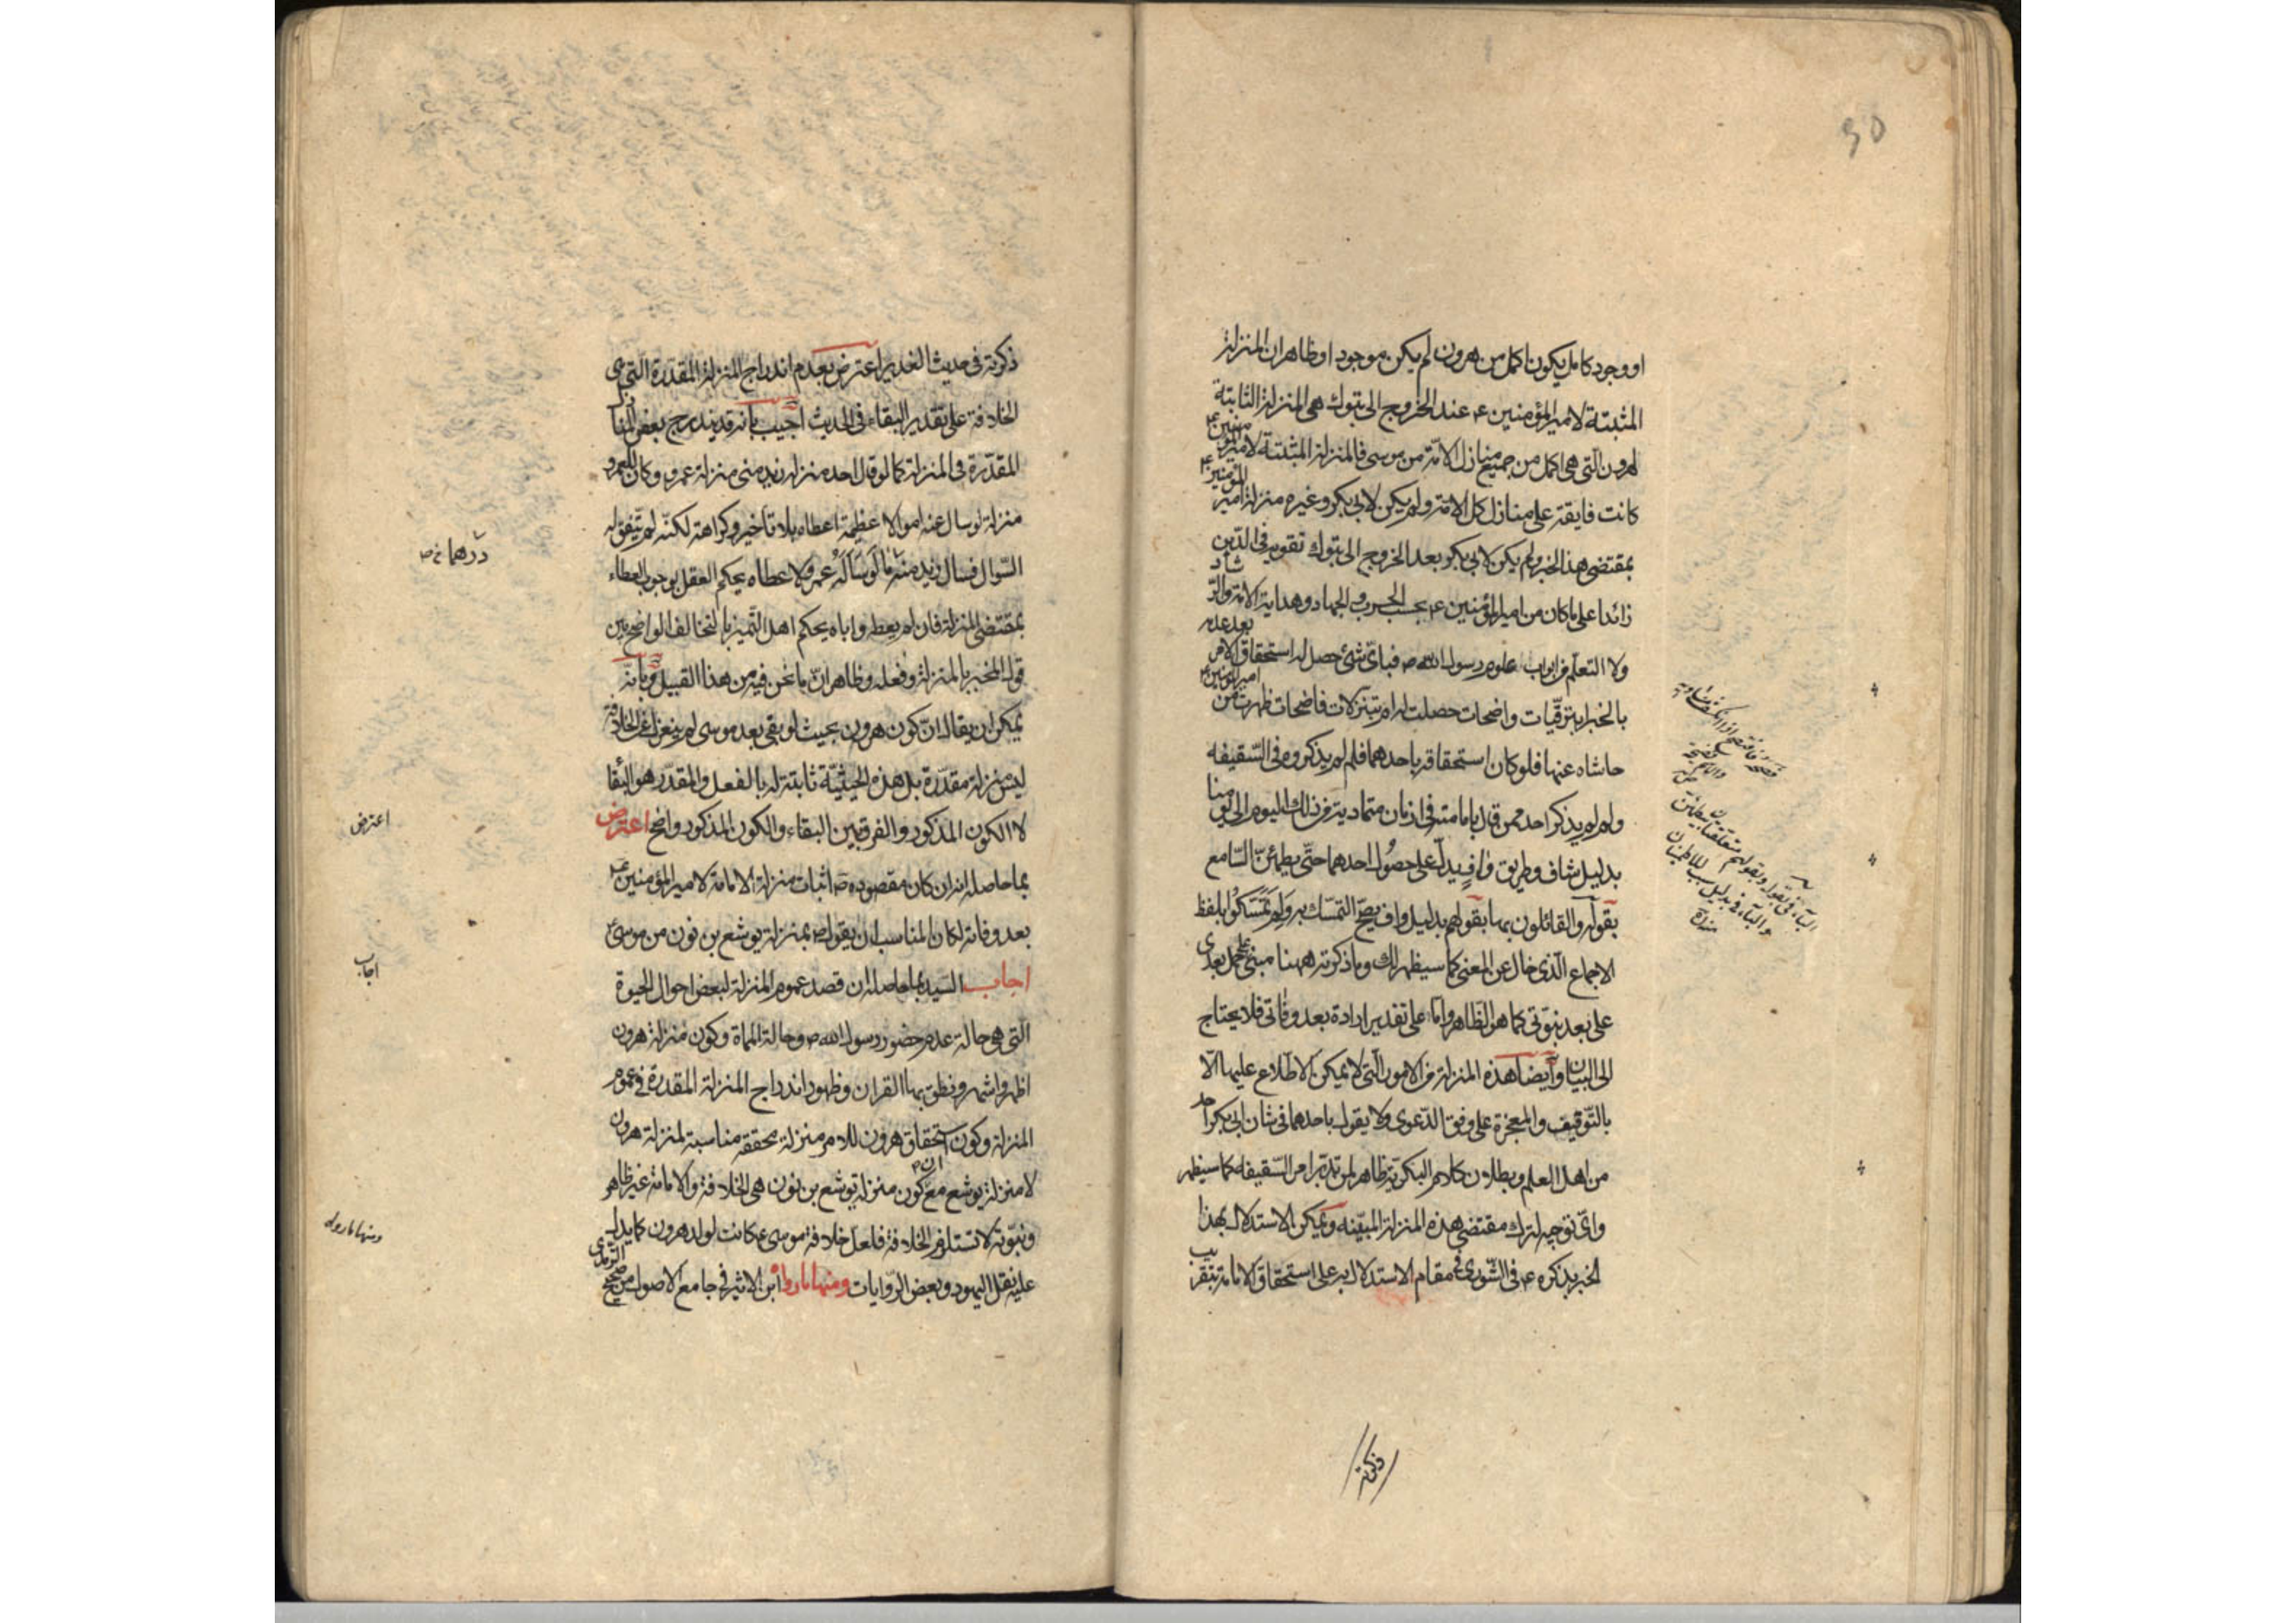 او وجود كامل يكون اكمل من هرون لم يكن موجودا وظاهر ان المنزلة
المثبتة لامير المؤمنين ع عند الخروج الى تبوك هي المنزلة الثابتة
لهرون التي هي اكمل من جميع منازل الامة من موسى فالمنزلة المثبتة لامير المؤمنين ع
كانت فايقة على منازل كل الامة ولم يكن لابي بكر وغيره منزلة امير المؤمنين ع
بمقتضى هذا الخبر ولم يكن لابي بكر بعد الخروج الى تبوك تقوية في الدين
زائدا على ما كان من امير المؤمنين ع بحسب الحرب والجهاد وهداية الامة والرشاد
ولا التعلم من ابواب علوم رسول الله ص فباي شئ حصل له استحقاق الامر بعد عدمه
بالخبر ابترقيات واضحات حصلت له ام بتنزلات فاضحات ظهرت من امير المؤمنين ع
حاشاه عنها فلو كان استحقاقه باحدهما فلم لم يذكروه في السقيفه
ولم لم يذكر احد ممن قال بامامته في ازمان متمادية من ذلك اليوم الى يومنا
بدليل شاف وطريق واف يدل على حصول احدهما حتى يطمئن السامع
بقوله والقائلون بها بقولهم بدليل واف يصح التمسك به ولم تمسكوا بلفظ
الاجماع الذي خال عن المعنى كما سيظهر لك وما ذكرته ههنا مبنى على حمل بعدي
على بعد نبوتي كما هو الظاهر واما على تقدير ارادة بعد وفاتي فلا يحتاج
الى البيان وايضا هذه المنزلة من الامور التي لا يمكن الاطلاع عليها الا
بالتوقيف والمعجزة على وفق الدعوى ولا يقول باحدهما في شان ابي بكر احد
من اهل العلم وبطلان كلام البكرية ظاهر لمن تدبر امر السقيفه كما سيظهر
واي توجيه لترك مقتضى هذه المنزلة المبينه ويمكن الاستدلال بهذا
الخبر بذكره ع في الشورى في مقام الاستدلال به على استحقاق الامامة بتقريب
ذكرته
ذكرته في حديث الغدير اعترض بعدم اندراج المنزلة المقدرة التي هي
الخلافة على تقدير البقاء في الحديث اجيب بانه قد يندرج بعض المنازل
المقدرة في المنزلة كما لو قال احد منزلة زيد مني منزلة عمرو وكان لعمرو
منزلة لو سال عنه اموالا عظيمة اعطاه بلا تاخير وكراهة لكنه لم يتفق له
السؤال فسال زيد منه ما لو ساله عمرو لاعطاه يحكم العقل بوجوب العطاء
درهما خ ص
بمقتضى المنزلة فان لم يعطه واباه يحكم اهل التميز بالتخالف الواضح بين
قول المخبر بالمنزلة وفعله وظاهر ان ما نحن فيه من هذا القبيل وبانه
يمكن ان يقال ان كون هرون بحيث لو بقي بعد موسى لم ينعزل عن الخلافة
ليس منزلة مقدرة بل هذه الحيثية ثابتة له بالفعل والمقدر هو البقا
لا الكون المذكور والفرق بين البقاء والكون المذكور واضح اعترض
اعترض
بما حاصله انه ان كان مقصوده ص اثبات منزلة الامامة لامير المؤمنين ع
بعد وفاته لكان المناسب ان يقول ص بمنزلة يوشع بن نون من موسى ع
اجاب السيد بما حاصله ان قصد عموم المنزلة لبعض احوال الحيوة
اجاب
التي هي حالة عدم حضور رسول الله ص وحالة المماة وكون منزلة هرون
اظهر واشهر ونطق بها القران وظهور اندراج المنزلة المقدرة في عموم
المنزلة وكون استحقاق هرون للامر منزلة محققه مناسبة لمنزلة هرون
لا منزلة يوشع مع ان كون منزلة يوشع بن نون هي الخلافة والامامة غير ظاهر
ونبوته لا تستلزم الخلافة فلعل خلافة موسى ع كانت لولد هرون كما يدل
ومنها ما رواه
عليه نقل اليهود وبعض الروايات ومنها ما رواه ابن الاثير في جامع الاصول من صحيح الترمذي